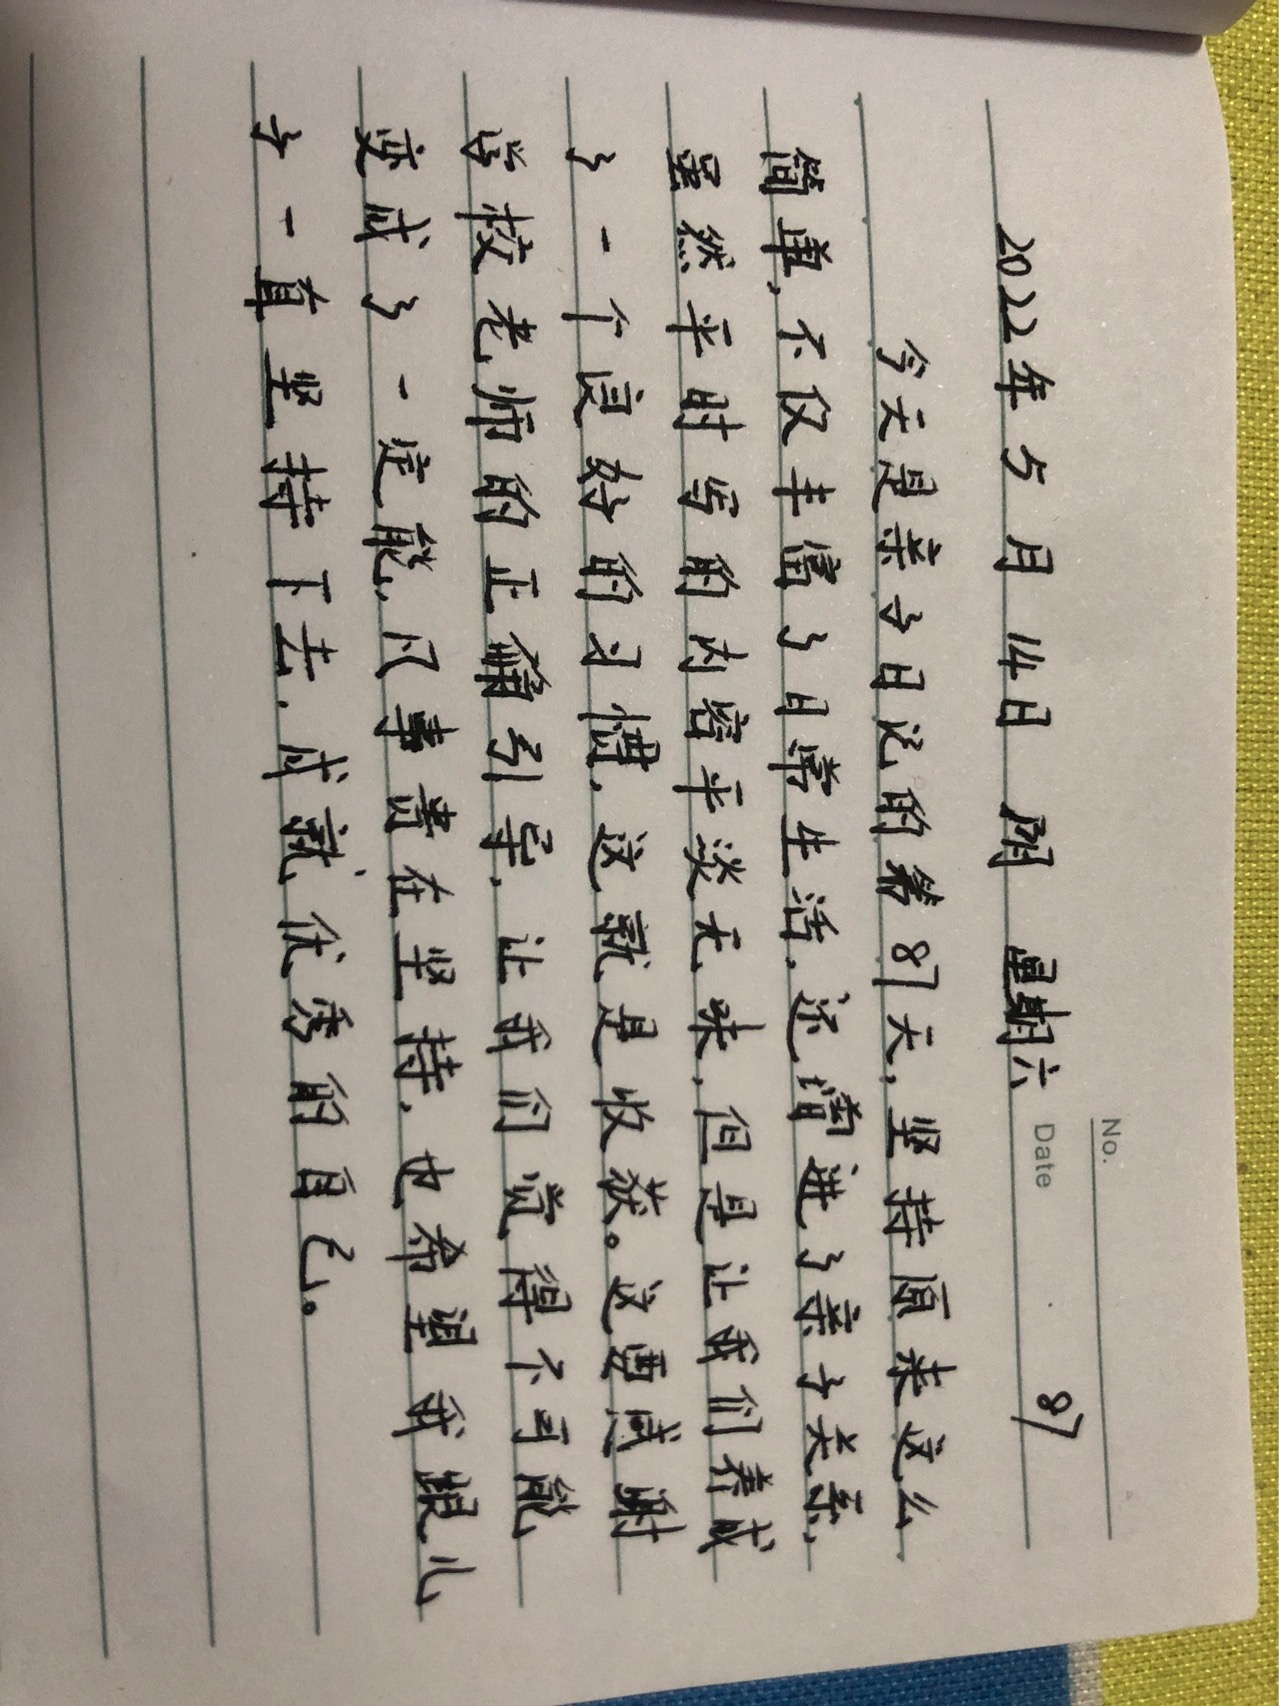 No.
Date
87
2022年5月14日 阴 星期六
今天是亲子日记的第87天,坚持原来这么
简单,不仅丰富了日常生活,还增进了亲子关系,
虽然平时写的内容平淡无味,但是让我们养成
了一个良好的习惯,这就是收获。这要感谢
学校老师的正确引导,让我们觉得不可能
变成了一定能,凡事贵在坚持,也希望我跟儿
子一直坚持下去,成就优秀的自己。